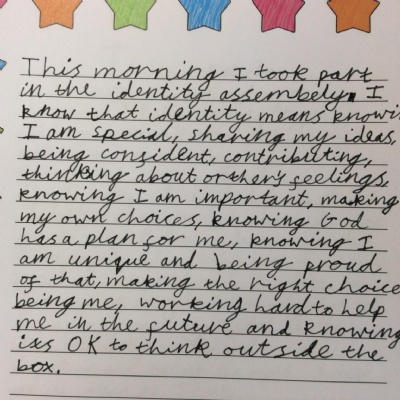 This morning I took part
in the identity assembely. I
know that identity means knowi
I am special, sharing my ideas,
being confident, contributing,
thinking about orther's feelings,
knowing I am important, making
my own choices, knowing God
has a plan for me, knowing I
am unique and being proud
of that, making the right choice
being me, working hard to help
me in the future and knowing
its OK to think outside the
box.